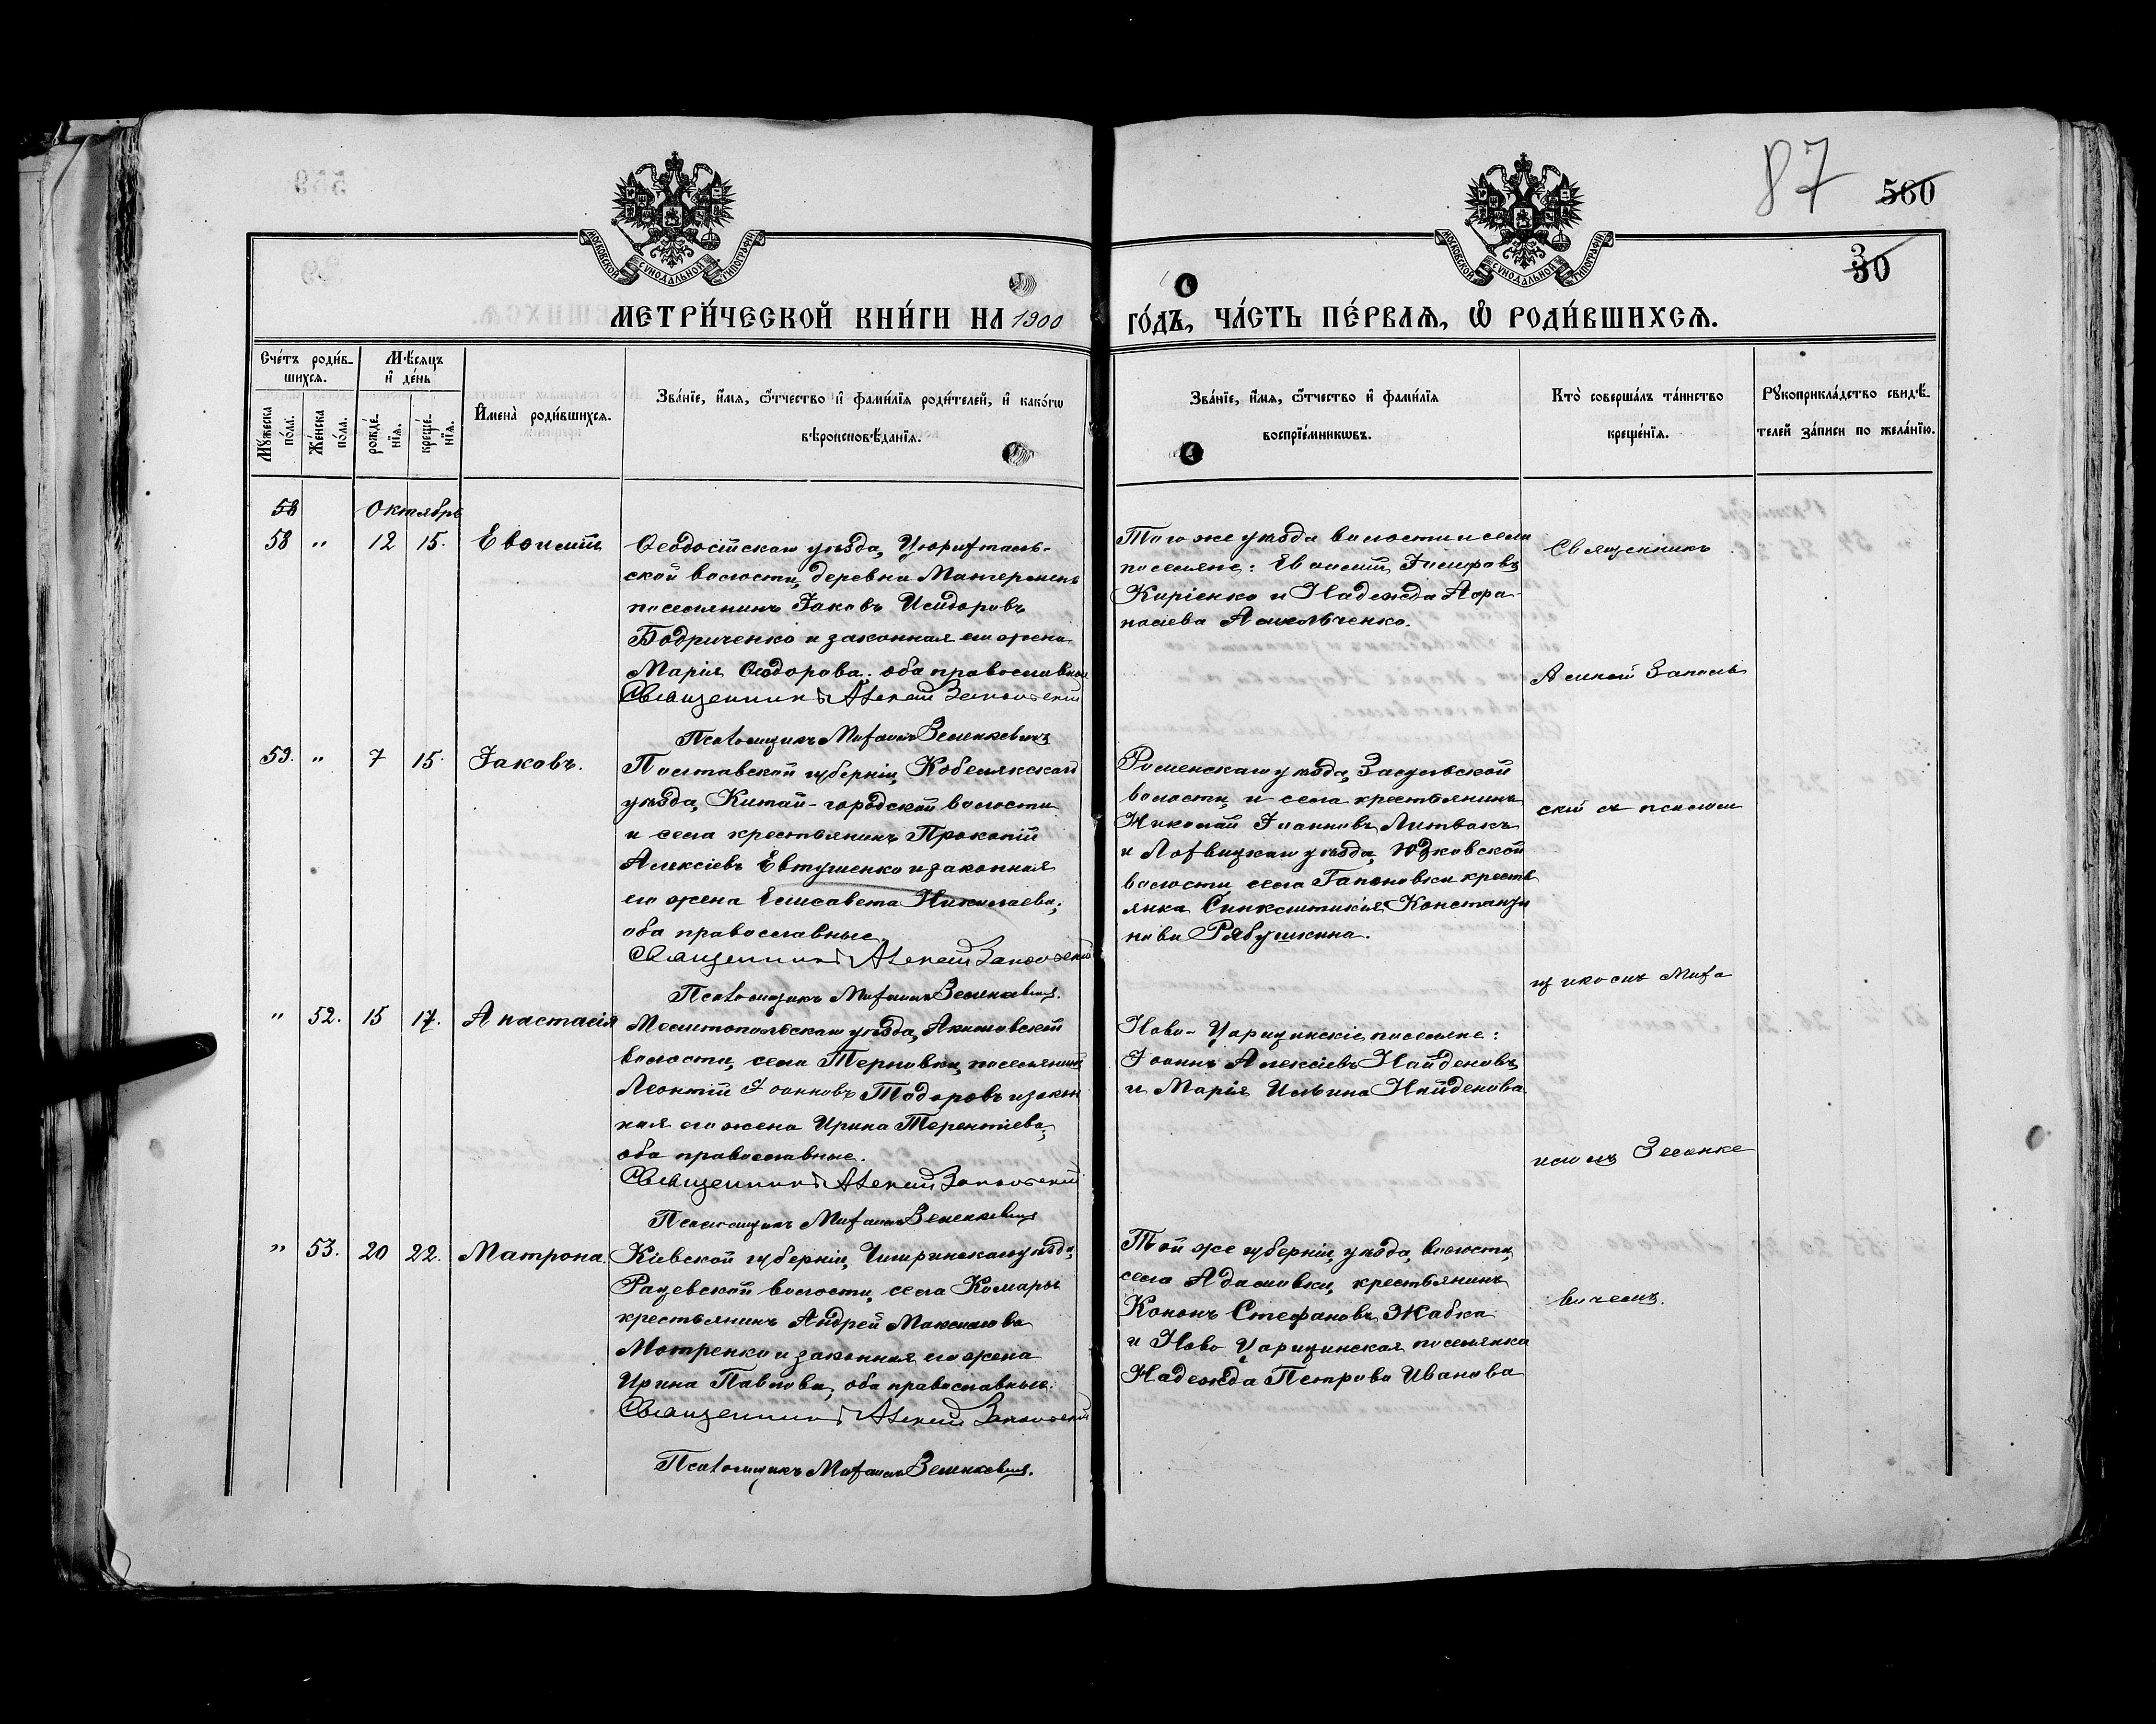 87
560
30
3
МОСКОВСКОЙ СУНОДАЛЬНОЙ ТИПОГРАФІИ
МОСКОВСКОЙ СУНОДАЛЬНОЙ ТИПОГРАФІИ
МЕТРИ́ЧЕСКОЙ КНИ́ГИ НА 1900
ГО́ДЪ, ЧА́СТЬ ПЕ́РВАѦ, Ѡ РОДИ́ВШИХСѦ.
Сче́тъ роди́в-
шихсѧ.
Мѣ́сѧцъ
и҆ де́нь
Мꙋжеска
по́ла.
Же́нска
по́ла.
рожде́-
нїѧ.
креще́-
нїѧ.
И҆мена̀ роди́вшихсѧ.
Зва́нїе, и҆́мѧ, ѻ҆́тчество и҆ фами́лїѧ роди́телей, и҆ како́гѡ
вѣроисповѣ́данїѧ.
Зва́нїе, и҆́мѧ, ѻ҆́тчество и҆ фами́лїѧ
воспрїе́мникѡвъ.
Кто̀ соверша́лъ та́инство
креще́нїѧ.
Рꙋкоприкла́дство свидѣ́-
телей за́писи по жела́нїю.
58 Октябрь
58 " 12 15. Евѳимій
Ѳеодосійскаго уѣзда, Цюрихталь-
ской волости, деревни
поселянинъ Іаковъ Исидоровъ
Бодриченко и законная его жена
Марія Ѳеодорова, оба православные
Священникъ Алексій Запольскій
Псаломщикъ Михаилъ Зеленкевичъ
Того же уѣзда волости и села
поселяне: Евѳимій Іосифовъ
Киріенко и Надежда Аѳа-
насіева
Священникъ
Алексій Заполь
59. " 7 15. Іаковъ.
Полтавской губерніи, Кобелякскаго
уѣзда, Китай-городской волости
и села крестьянинъ Прокопій
Алексіевъ Евтушенко и законная
его жена Елисавета Николаева,
оба православные.
Священникъ Алексій Запольскій
Псаломщикъ Михаилъ Зеленкевичъ.
Роменскаго уѣзда, Засульской
волости и села крестьянинъ
Николай Іоанновъ Литвакъ
и Лохвицкаго уѣзда, Юзковской
волости села Гапоновки кресть
янка Синклитикія Константи
нова Рябушкина.
скій съ псалом
щикомъ Миха
" 52. 15 17. Анастасія
Мелитопольскаго уѣзда, Акимовской
волости, села Терновки, поселянинъ
Леонтій Іоанновъ Тодоровъ и закон
ная его жена Ирина Терентіева,
оба православные.
Священникъ Алексій Запольскій
Псаломщикъ Михаилъ Зеленкевичъ
Ново-Царицинскіе поселяне:
Іоаннъ Алексіевъ Найденовъ
и Марія Ильина Найденова.
иломъ Зеленке
" 53. 20 22. Матрона.
Кіевской губерніи, Чигиринскаго уѣзда,
Рацевской волости, села Комары
крестьянинъ Андрей Максимовъ
Мотренко и законная его жена
Ирина Павлова, оба православные.
Священникъ Алексій Запольскій
Псаломщикъ Михаилъ Зеленкевичъ.
Той же губерніи, уѣзда, волости,
села Адамовки, крестьянинъ
Кононъ Стефановъ Жабка
и Ново Царицинская поселянка
Надежда Петрова Иванова
вичемъ.